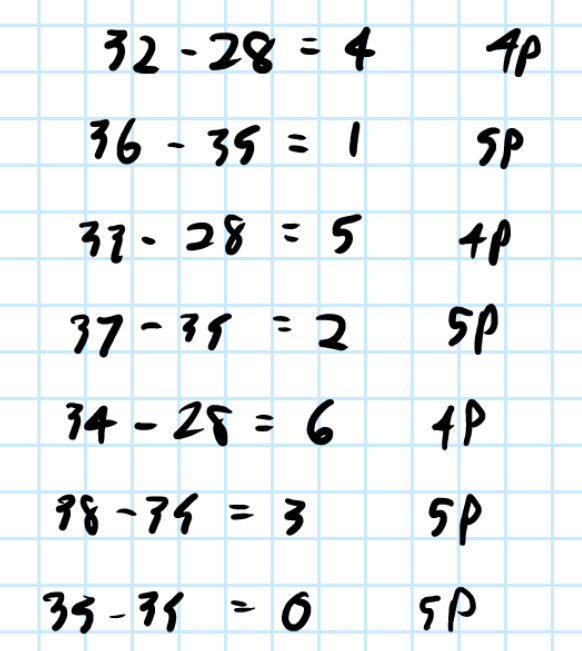 32 - 28 = 4 4P
36 - 35 = 1 5P
33 - 28 = 5 4P
37 - 35 = 2 5P
34 - 28 = 6 4P
38 - 35 = 3 5P
35 - 35 = 0 5P